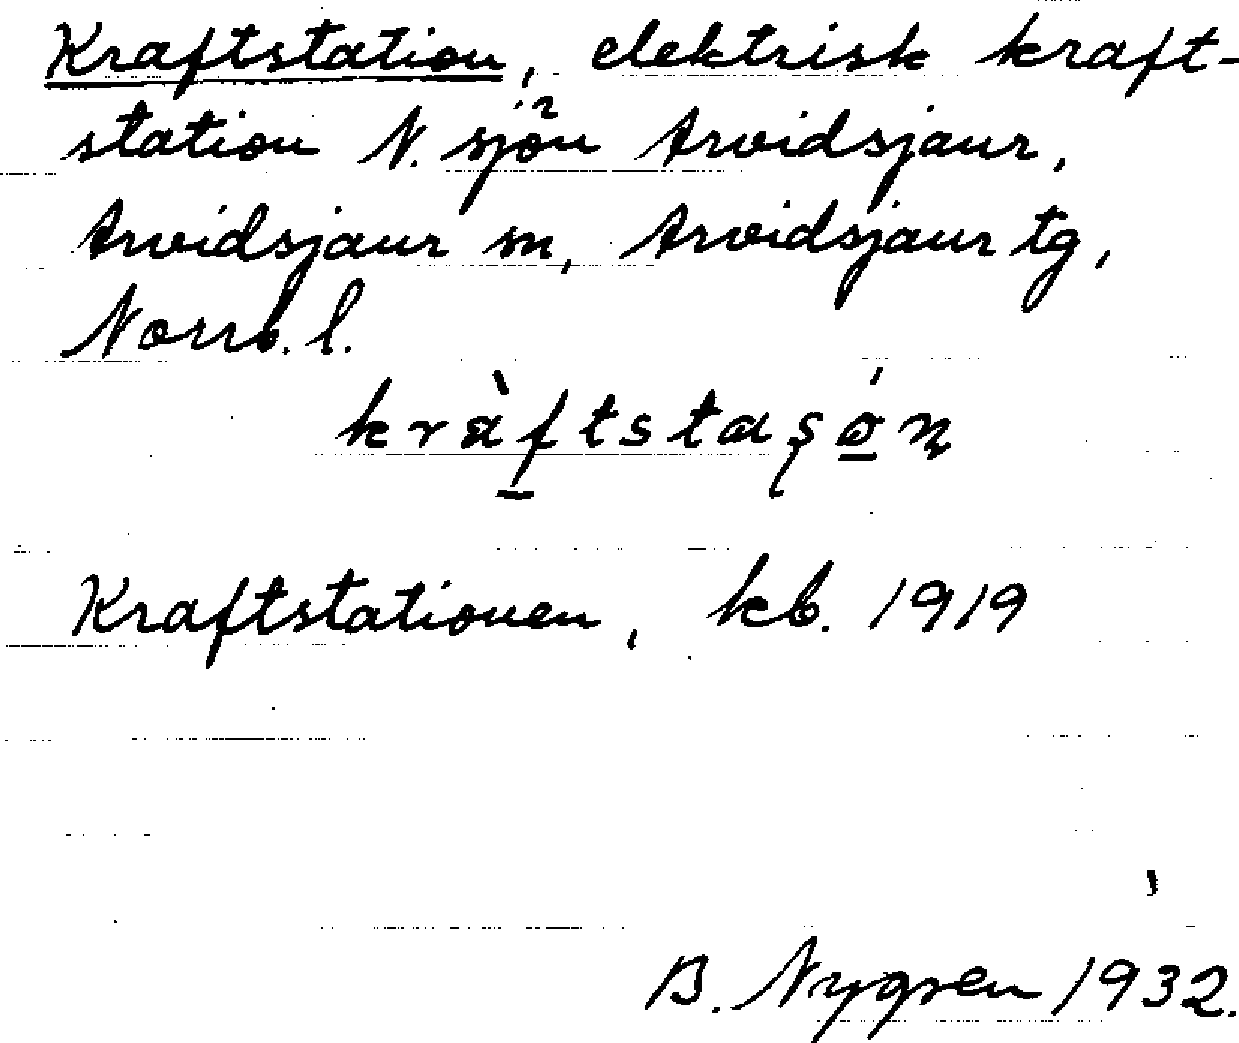 Kraftstation, elektrisk kraft-
station N. sjön Arvidsjaur,
Arvidsjaur sn, Arvidsjaur tg,
Norrb. l.
kràftstaʂón
Kraftstationen, kb. 1919
B. Nygren 1932.